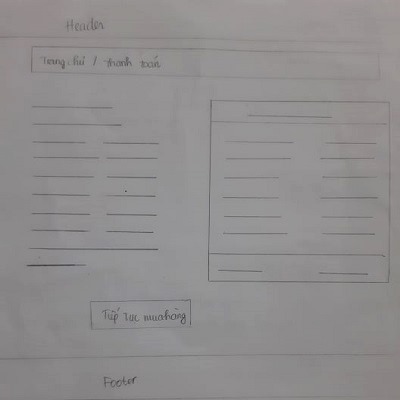 Header
Trang chủ / thanh toán
Tiếp tục mua hàng
Footer